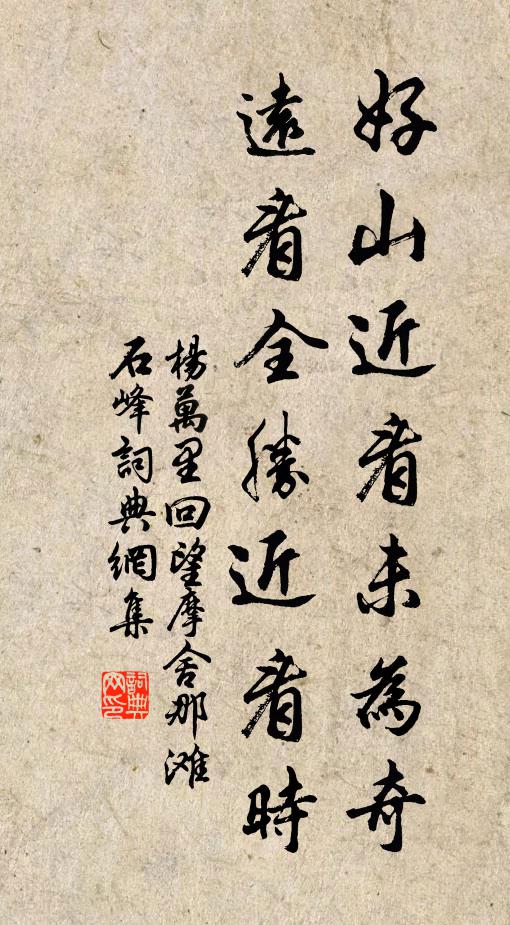 好山近看未為奇
遠看全勝近看時
楊萬里回望摩舍那灘
石峰詞典網集
詞典網印